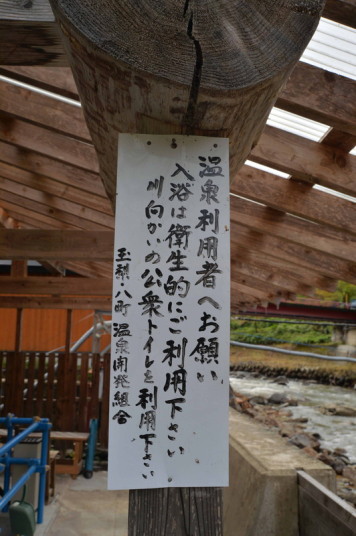 温泉利用者へお願い
入浴は衛生的にご利用下さい
川向かいの公衆トイレを利用下さい
玉梨・八町温泉開発組合